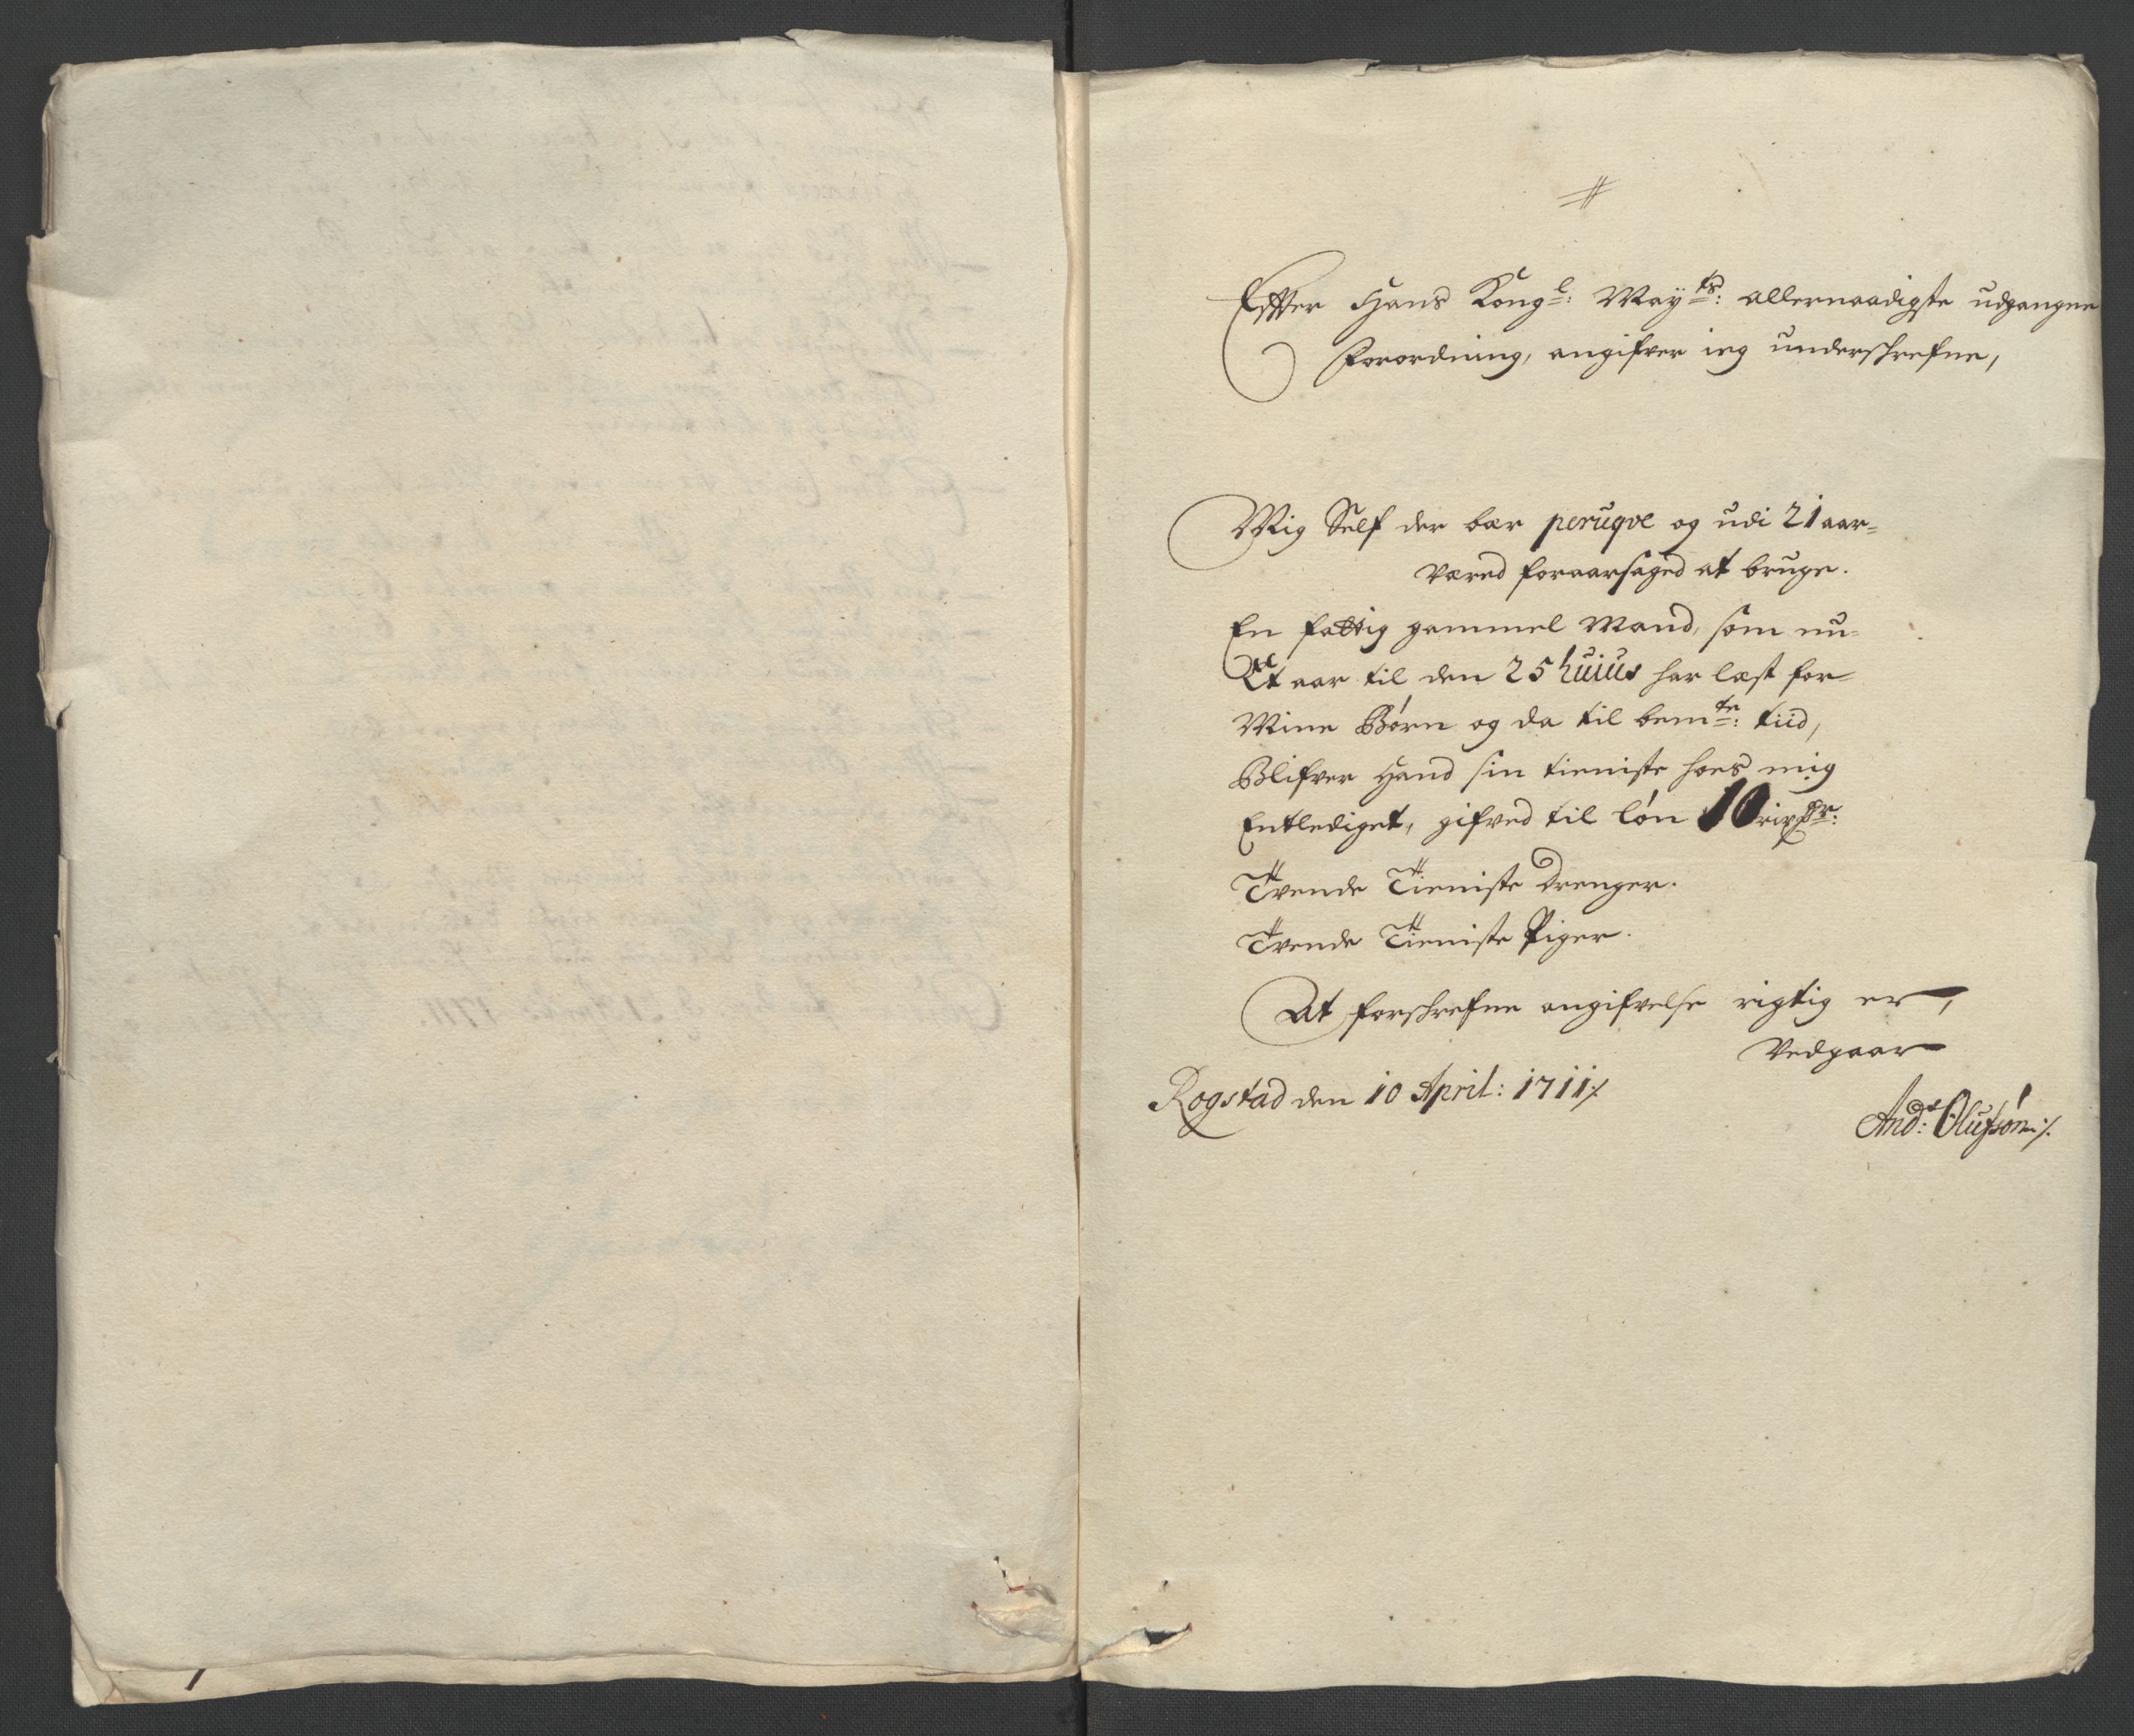 Effter Hans Kongl: Mayts: allernaadigste udgangne
Forordning, angifver ieg underschrefne,
Mig Self der bær peruqve og udi 21 aar-
væred foraarsaged at bruge.
En fattig gammel Mand, som nu-
Et aar til den 25 huius har læst for-
Mine Børn og da til bemte: tiid,
Blifver Hand sin tieniste hoes mig
Entlediget, gifved til løn 10 rixdr:
Tvende Tieniste Drenger.
Tvende Tieniste Piger.
At forschrefne angifvelse rigtig er,
Vedgaar
Rogstad den 10 April: 1711 ⁒
And: Olufsøn ⁒